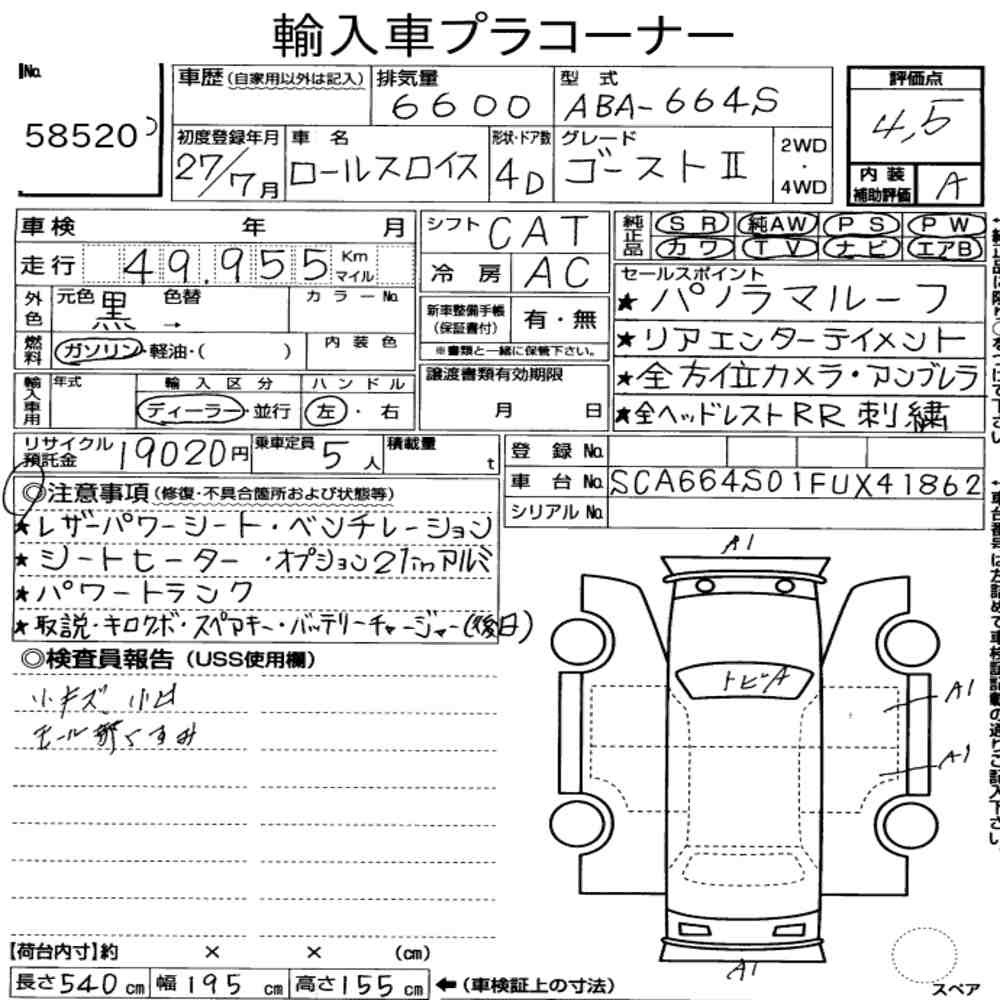 輸入車プラコーナー
No.
58520
車歴(自家用以外は記入)
排気量
6600
型式
ABA-664S
評価点
4,5
初度登録年月
27/7月
車名
ロールスロイス
形状・ドア数
4D
グレード
ゴースト Ⅱ
2WD
・
4WD
内装
補助評価
A
車検 年 月
走行 49,955 Km マイル
外色
元色 黒
色替 →
カラーNo.
燃料
ガソリン・軽油・( )
内装色
輸入車用
年式
輸入区分
ディーラー・並行
ハンドル
左・右
シフト CAT
冷房 AC
新車整備手帳
(保証書付)
有・無
※書類と一緒に保管下さい。
譲渡書類有効期限
月 日
純正品
SR 純AW PS PW
カワ TV ナビ エアB
セールスポイント
★パノラマルーフ
★リアエンターテイメント
★全方位カメラ・アンブレラ
★全ヘッドレストRR刺繍
リサイクル
預託金
19020円
乗車定員 5人
積載量 t
登録No.
車台No. SCA664S01FUX41862
シリアルNo.
◎注意事項(修復・不具合箇所および状態等)
★レザーパワーシート・ベンチレーション
★シートヒーター・オプション21inアルミ
★パワートランク
★取説・キロクボ・スペアキー・バッテリーチャージャー(後日)
◎検査員報告(USS使用欄)
小キズ 小凹
モール 曇 くすみ
A1
トビA
A1
A1
A1
【荷台内寸】約 × × (cm)
長さ540cm 幅195cm 高さ155cm
←(車検証上の寸法)
スペア